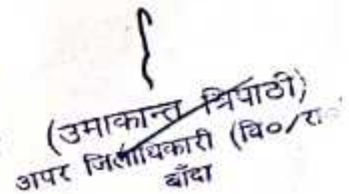 (उमाकान्त त्रिपाठी)
अपर जिलाधिकारी (वि०/रा०
बाँदा